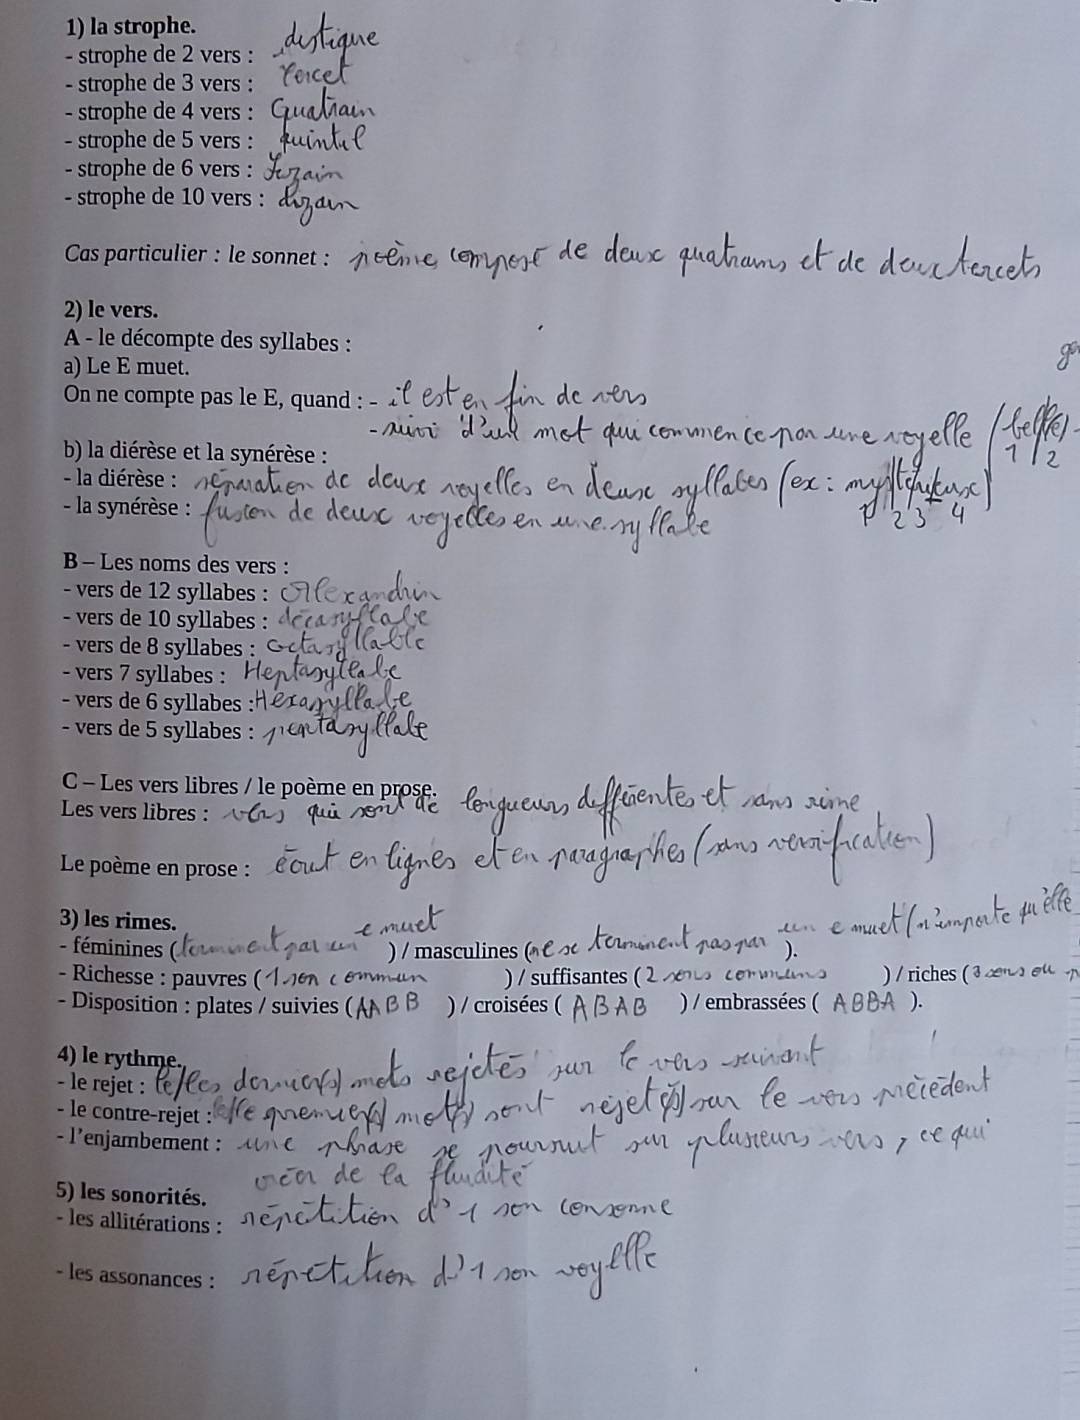 1) la strophe.
- strophe de 2 vers : distique
- strophe de 3 vers : tercet
- strophe de 4 vers : Quatrain
- strophe de 5 vers : quintil
- strophe de 6 vers : sizain
- strophe de 10 vers : dizain
Cas particulier : le sonnet : poème composé de deux quatrains et de deux tercets
2) le vers.
A - le décompte des syllabes :
a) Le E muet.
On ne compte pas le E, quand : - il est en fin de vers
- suivi d'un mot qui commence par une voyelle (bel/le)
1 2
b) la diérèse et la synérèse :
- la diérèse : séparation de deux voyelles en deux syllabes (ex :
- la synérèse : fusion de deux voyelles en une syllabe
1 2 3 4
B – Les noms des vers :
- vers de 12 syllabes : Alexandrin
- vers de 10 syllabes : décasyllabe
- vers de 8 syllabes : octasyllable
- vers 7 syllabes : Heptasyllabe
- vers de 6 syllabes : Hexasyllabe
- vers de 5 syllabes : pentasyllabe
C – Les vers libres / le poème en prose.
Les vers libres : vers qui sont de longueurs différentes et sans rime
Le poème en prose : écrit en lignes et en paragraphes (sans versification)
3) les rimes.
- féminines (terminent par un e muet ) / masculines (ne se terminent pas par un e muet (n'importe qu'elle ).
- Richesse : pauvres (1 son commun ) / suffisantes (2 sons communs ) / riches (3 sons ou
- Disposition : plates / suivies (AABB ) / croisées ( ABAB ) / embrassées ( ABBA ).
4) le rythme.
- le rejet : le/les dernier(s) mots rejetés sur le vers suivant
- le contre-rejet : premier(s) mot(s) sont rejeté(s) sur le vers précédent
- l'enjambement : une phrase se poursuit sur plusieurs vers, ce qui
crée de la fluidité
5) les sonorités.
- les allitérations : répétition d'1 son consonne
- les assonances : répétition d'1 son voyelle